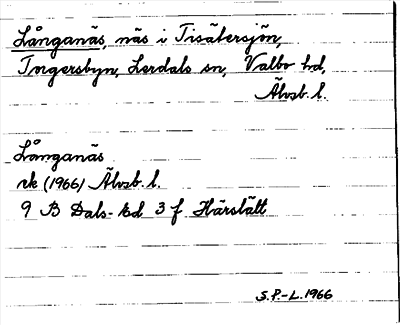 Långanäs, näs i Tisätersjön,
Torgersbyn, Lerdals sn, Valbo hd,
Älvsb. l.
Långanäs
rk (1966) Älvsb. l.
9 B Dals-Ed 3 f Härslätt
S.P.-L. 1966